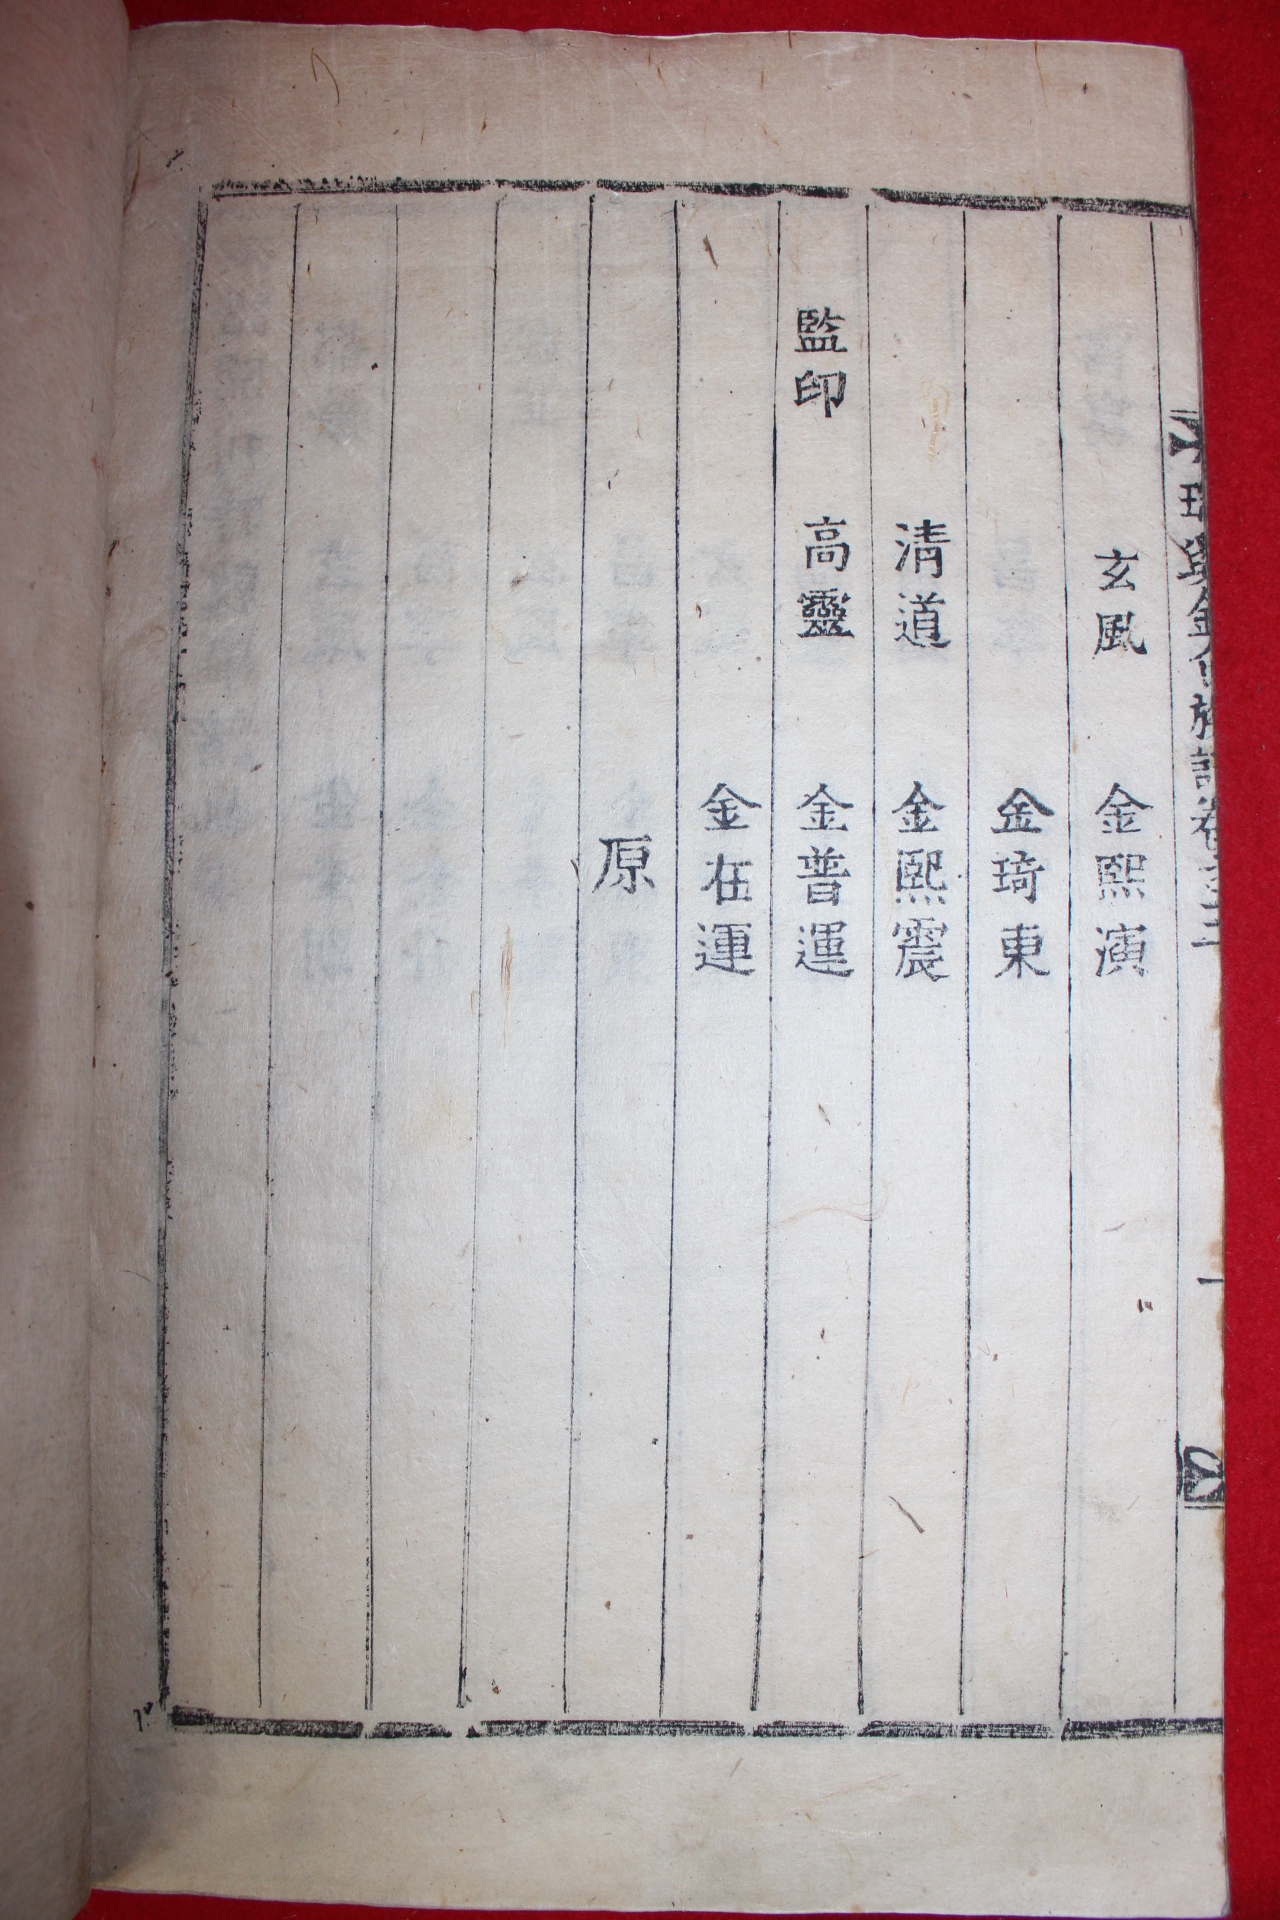 金氏族譜卷之二
一
玄風 金熙演
金琦東
清道 金熙震
監印 高靈 金普運
金在運
原